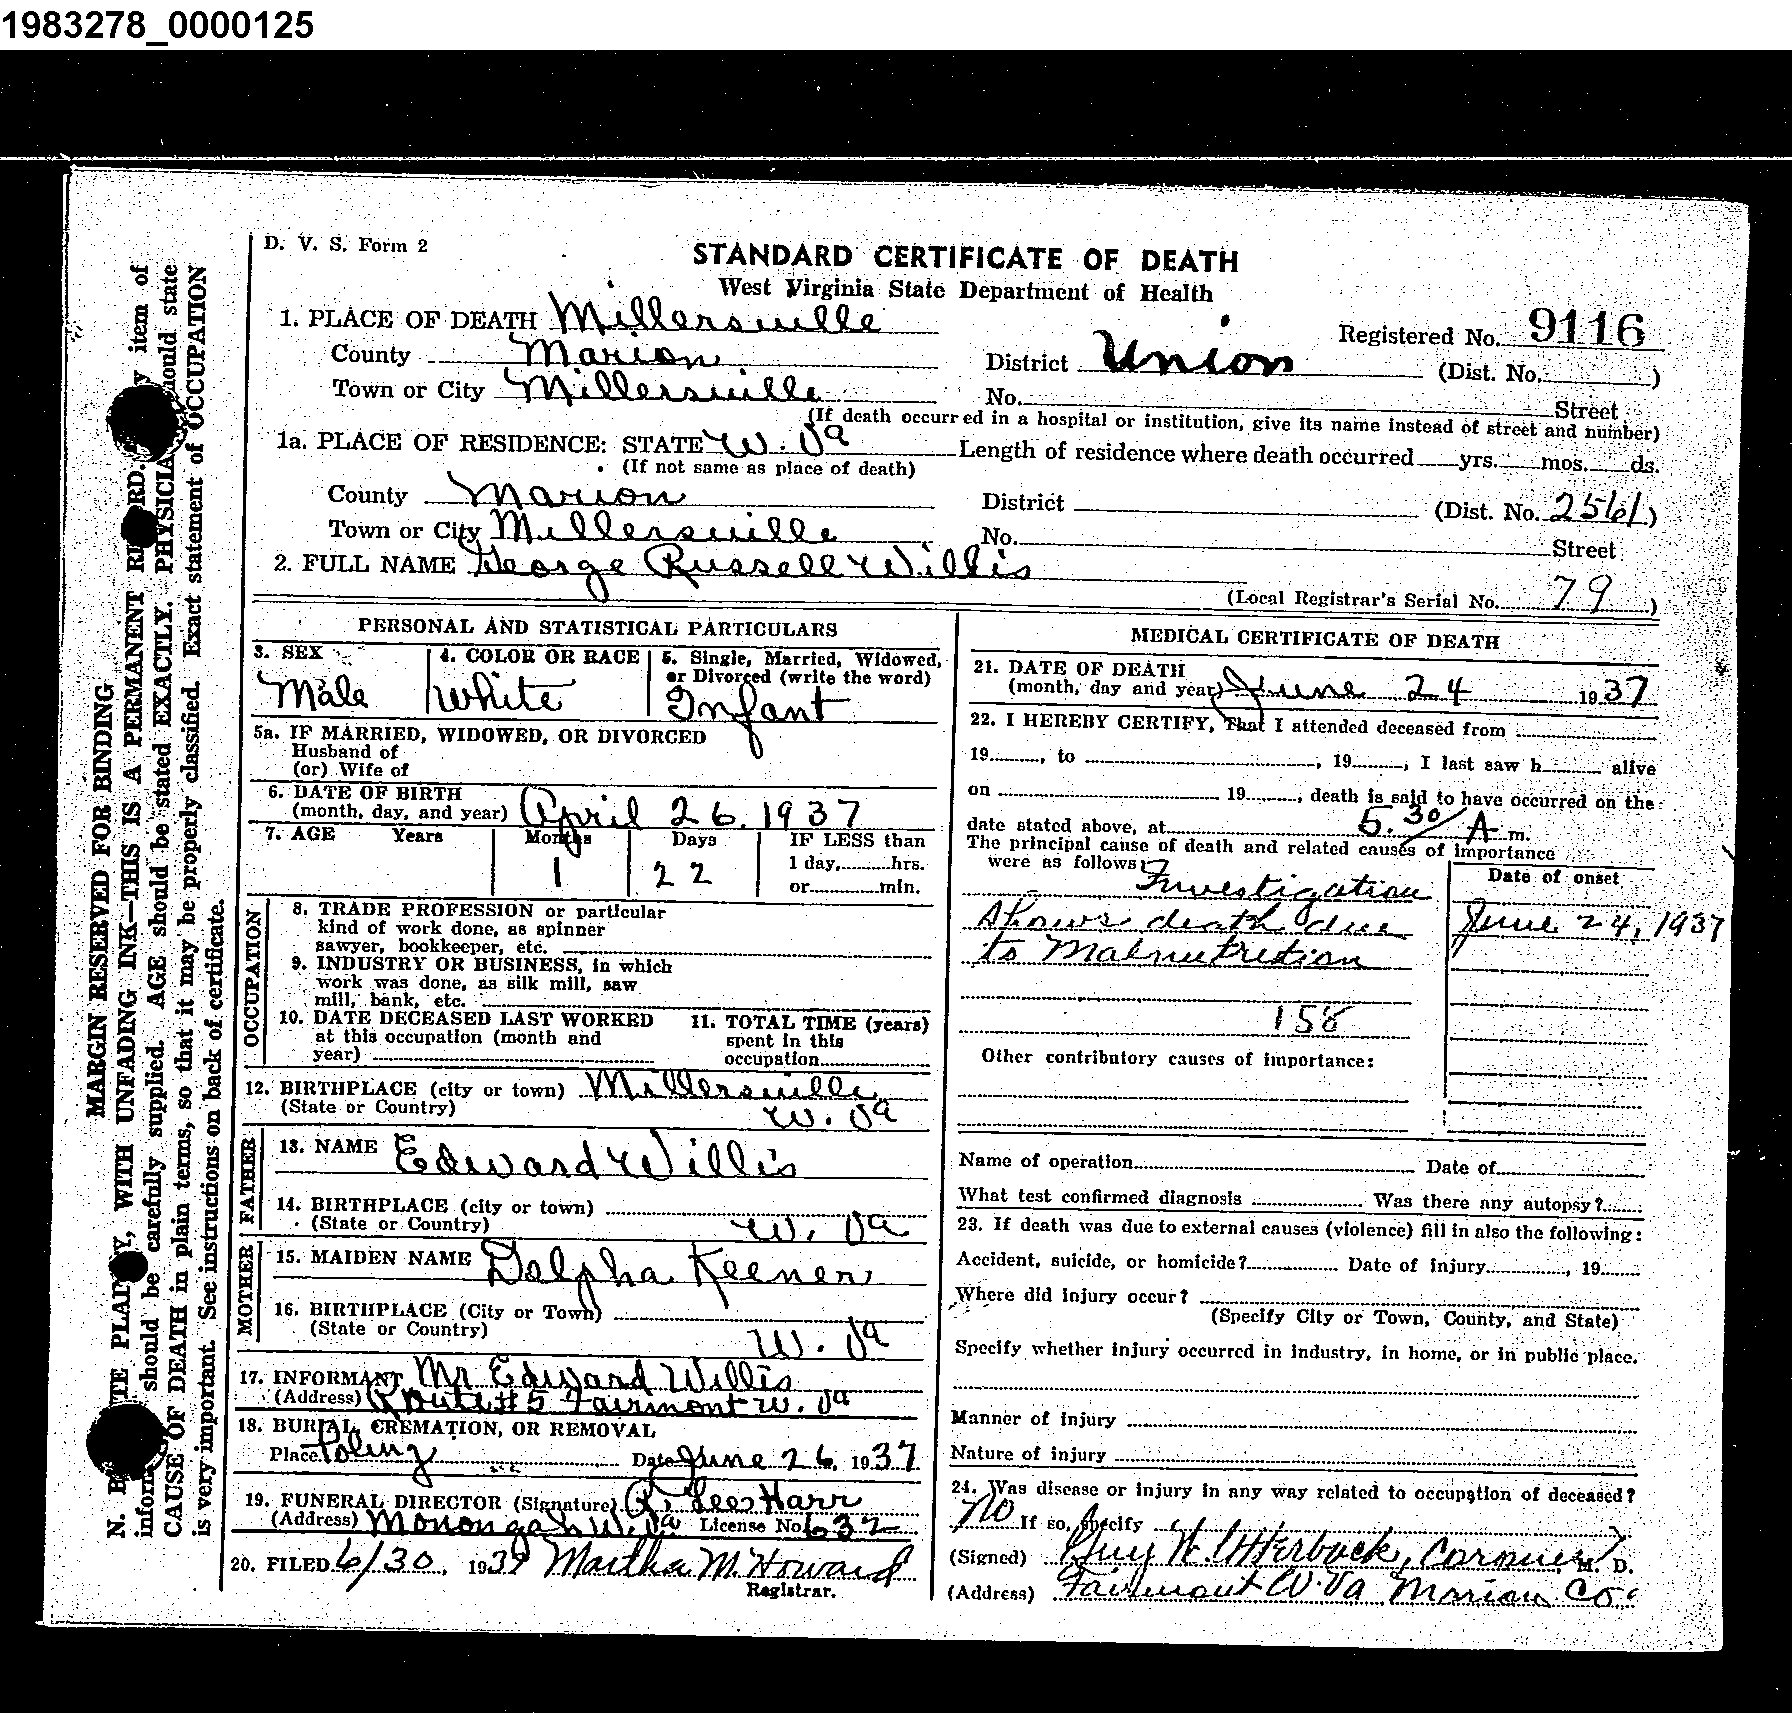 1983278_0000125
D. V. S. Form 2
STANDARD CERTIFICATE OF DEATH
West Virginia State Department of Health
1. PLACE OF DEATH Millersville
Registered No. 9116
County Marion
District Union (Dist. No. )
Town or City Millersville
No. Street
(If death occurred in a hospital or institution, give its name instead of street and number)
1a. PLACE OF RESIDENCE: STATE W. Va
Length of residence where death occurred yrs. mos. ds.
(If not same as place of death)
County Marion
District (Dist. No. 2561)
Town or City Millersville
No. Street
2. FULL NAME George Russell Willis
(Local Registrar's Serial No. 79)
PERSONAL AND STATISTICAL PARTICULARS
3. SEX 4. COLOR OR RACE 5. Single, Married, Widowed,
or Divorced (write the word)
Male White Infant
5a. IF MARRIED, WIDOWED, OR DIVORCED
Husband of
(or) Wife of
6. DATE OF BIRTH
(month, day, and year) April 26, 1937
7. AGE Years Months Days IF LESS than
1 22 1 day, hrs.
or min.
OCCUPATION
8. TRADE PROFESSION or particular
kind of work done, as spinner
sawyer, bookkeeper, etc.
9. INDUSTRY OR BUSINESS, in which
work was done, as silk mill, saw
mill, bank, etc.
10. DATE DECEASED LAST WORKED
at this occupation (month and
year)
11. TOTAL TIME (years)
spent in this
occupation
12. BIRTHPLACE (city or town) Millersville
(State or Country) W. Va
FATHER
13. NAME Edward Willis
14. BIRTHPLACE (city or town)
(State or Country) W. Va
MOTHER
15. MAIDEN NAME Delpha Keener
16. BIRTHPLACE (City or Town)
(State or Country) W. Va
17. INFORMANT Mr Edward Willis
(Address) Route #5 Fairmont W. Va
18. BURIAL, CREMATION, OR REMOVAL
Place Poling Date June 26, 1937
19. FUNERAL DIRECTOR (Signature) R. Lee Harr
(Address) Monongah W. Va License No. 632
20. FILED 6/30, 1937 Martha M. Howard
Registrar.
MEDICAL CERTIFICATE OF DEATH
21. DATE OF DEATH
(month, day and year) June 24 1937
22. I HEREBY CERTIFY, That I attended deceased from
19 , to , 19 , I last saw h alive
on 19 , death is said to have occurred on the
date stated above, at 5.30 A m.
The principal cause of death and related causes of importance
were as follows: Investigation
Date of onset
shows death due June 24, 1937
to Malnutrition
158
Other contributory causes of importance:
Name of operation Date of
What test confirmed diagnosis Was there any autopsy?
23. If death was due to external causes (violence) fill in also the following:
Accident, suicide, or homicide? Date of injury , 19
Where did injury occur?
(Specify City or Town, County, and State)
Specify whether injury occurred in industry, in home, or in public place.
Manner of injury
Nature of injury
24. Was disease or injury in any way related to occupation of deceased?
No If so, specify
(Signed) Guy H. Utterback, Coroner, M. D.
(Address) Fairmont W. Va Marion Co.
MARGIN RESERVED FOR BINDING
PLAINLY, WITH UNFADING INK—THIS IS A PERMANENT item of
should be carefully supplied. AGE should be stated EXACTLY. should state
CAUSE OF DEATH in plain terms, so that it may be properly classified. Exact statement of OCCUPATION
is very important. See instructions on back of certificate.